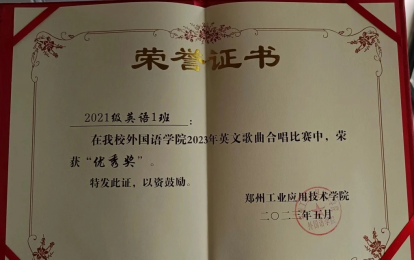 荣誉证书
2021级英语1班：
在我校外国语学院2023年英文歌曲合唱比赛中，荣
获“优秀奖”。
特发此证，以资鼓励。
郑州工业应用技术学院
二〇二三年五月